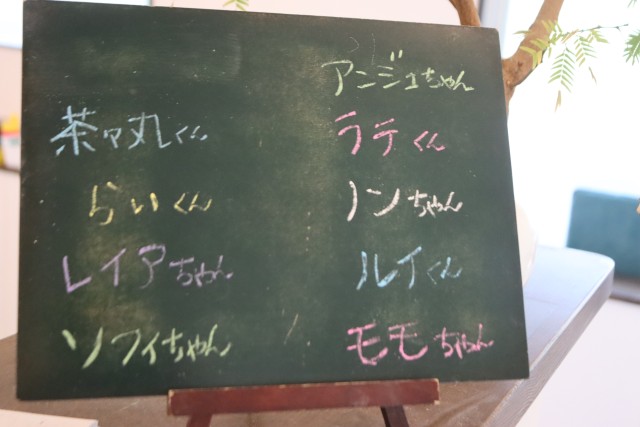 茶々丸くん
らいくん
レイアちゃん
ソフィちゃん
アンジュちゃん
ラテくん
ノンちゃん
ルイくん
モモちゃん